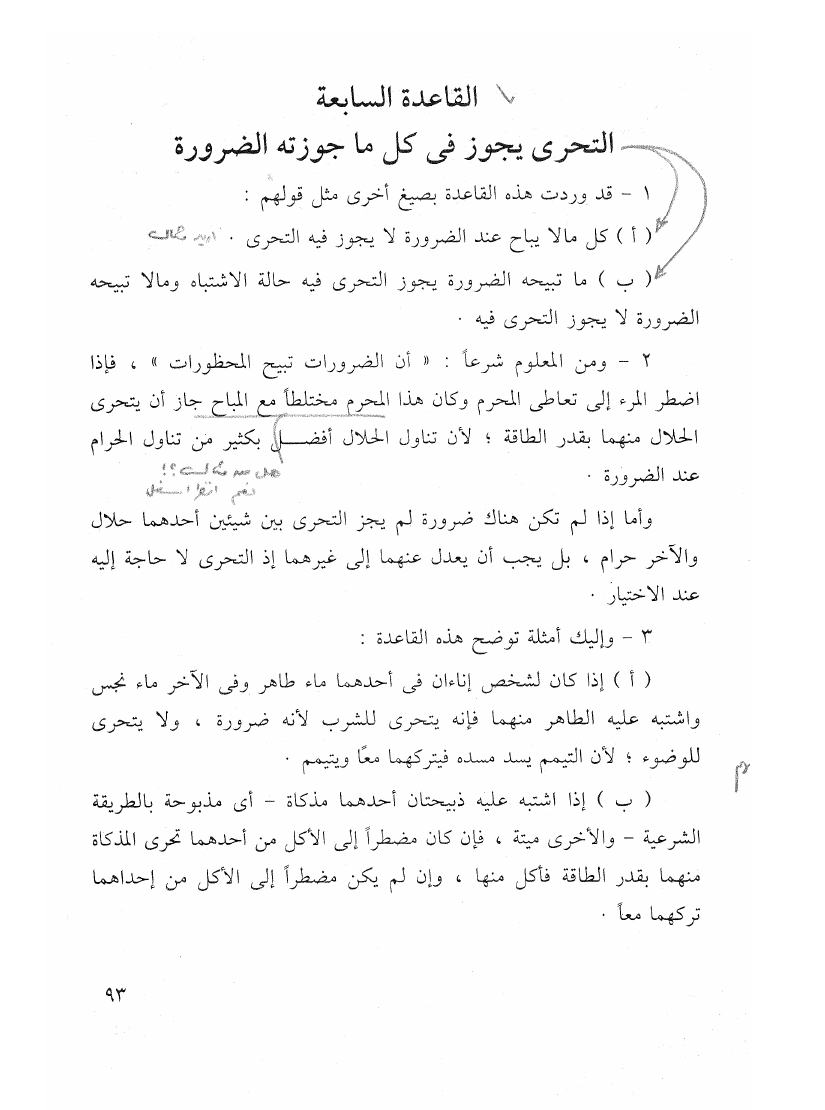 القاعدة السابعة
التحرى يجوز فى كل ما جوزته الضرورة
١ - قد وردت هذه القاعدة بصيغ أخرى مثل قولهم :
( أ ) كل مالا يباح عند الضرورة لا يجوز فيه التحرى . اريد مثال
( ب ) ما تبيحه الضرورة يجوز التحرى فيه حالة الاشتباه ومالا تبيحه
الضرورة لا يجوز التحرى فيه .
٢ - ومن المعلوم شرعاً : « أن الضرورات تبيح المحظورات » ، فإذا
اضطر المرء إلى تعاطى المحرم وكان هذا المحرم مختلطاً مع المباح جاز أن يتحرى
الحلال منهما بقدر الطاقة ؛ لأن تناول الحلال أفضــل بكثير من تناول الحرام
عند الضرورة .
هل من مثال ؟!
نعم انظر اسفل
وأما إذا لم تكن هناك ضرورة لم يجز التحرى بين شيئين أحدهما حلال
والآخر حرام ، بل يجب أن يعدل عنهما إلى غيرهما إذ التحرى لا حاجة إليه
عند الاختيار .
٣ - وإليك أمثلة توضح هذه القاعدة :
( أ ) إذا كان لشخص إناءان فى أحدهما ماء طاهر وفى الآخر ماء نجس
واشتبه عليه الطاهر منهما فإنه يتحرى للشرب لأنه ضرورة ، ولا يتحرى
للوضوء ؛ لأن التيمم يسد مسده فيتركهما معًا ويتيمم .
( ب ) إذا اشتبه عليه ذبيحتان أحدهما مذكاة - أى مذبوحة بالطريقة
الشرعية - والأخرى ميتة ، فإن كان مضطراً إلى الأكل من أحدهما تحرى المذكاة
منهما بقدر الطاقة فأكل منها ، وإن لم يكن مضطراً إلى الأكل من إحداهما
تركهما معاً .
٩٣